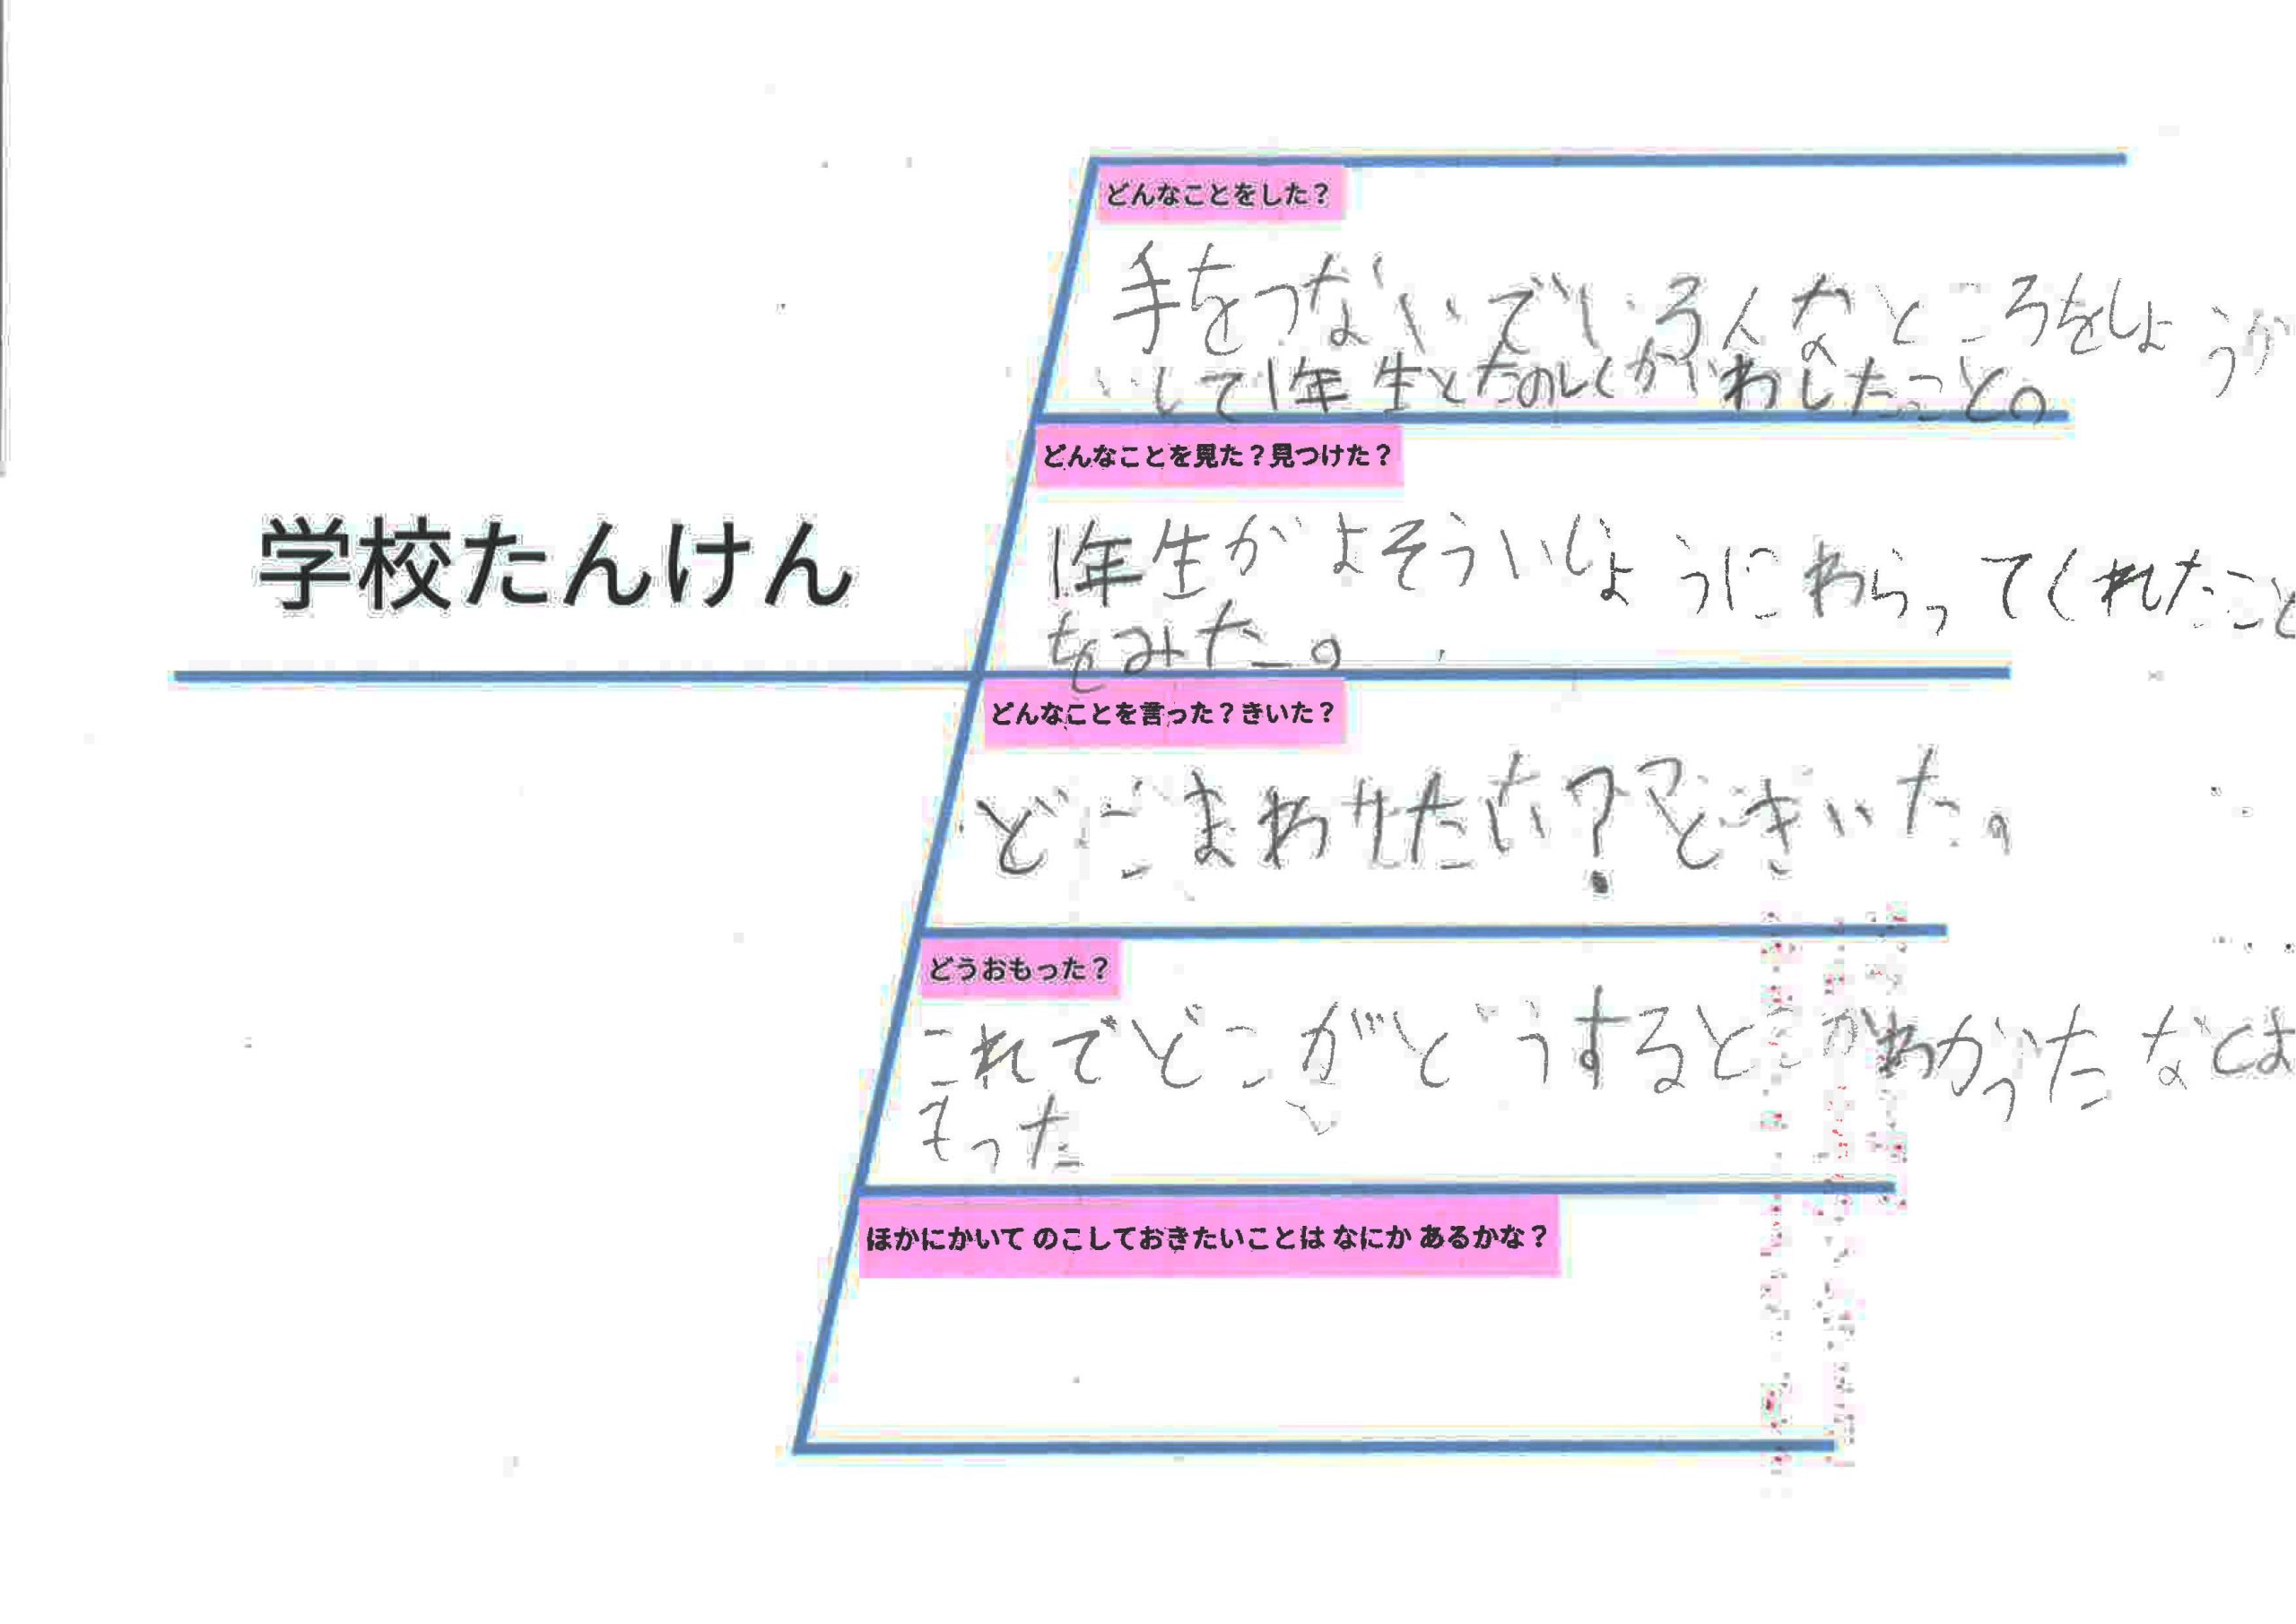 学校たんけん
どんなことをした?
手をつないでいろんなところをしょうか
いして1年生とたのしくかいわしたこと。
どんなことを見た?見つけた?
1年生がよそういじょうにわらってくれたこと
をみた。
どんなことを言った?きいた?
どこまわりたい?ときいた。
どうおもった?
これでどこがどうするとこかわかったなとお
もった
ほかにかいて のこしておきたいことは なにか あるかな?